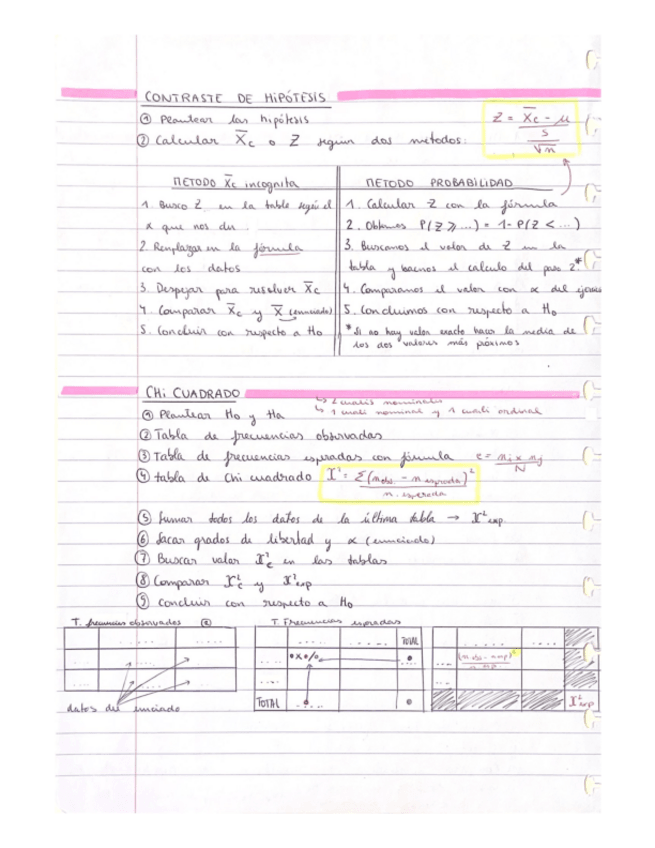 CONTRASTE DE HIPÓTESIS
① Plantear las hipótesis
② Calcular X̄c o Z según dos metodos:
Z = (X̄c - μ) / (S / √n)
METODO X̄c incognita
1. Busco Z en la tabla según el
α que nos dan.
2. Remplazar en la fórmula
con los datos
3. Despejar para resolver X̄c
4. Comparar X̄c y X̄ (enunciado)
5. Concluir con respecto a Ho
METODO PROBABILIDAD
1. Calcular Z con la fórmula
2. Obtenemos P(Z ≥ ...) = 1 - P(Z < ...)
3. Buscamos el valor de Z en la
tabla y hacemos el calculo del paso 2.*
4. Comparamos el valor con α del
5. Concluimos con respecto a Ho
* Si no hay valor exacto hacer la media de
los dos valores más próximos
CHI CUADRADO
↳ 2 cualis nominales
↳ 1 cuali nominal y 1 cuali ordinal
① Plantear Ho y Ha
② Tabla de frecuencias observadas
③ Tabla de frecuencias esperadas con fórmula e = ni x nj / N
④ tabla de Chi cuadrado X² = Σ(n obs. - n esperada)² / n. esperada
⑤ Sumar todos los datos de la última tabla → X²exp.
⑥ Sacar grados de libertad y α (enunciado)
⑦ Buscar valor X²c en las tablas
⑧ Comparar X²c y X²exp
⑨ Concluir con respecto a Ho
T. frecuencias observadas
T. Frecuencias esperadas
TOTAL
TOTAL
(n obs - n exp)² / n exp
X²exp
datos del enunciado